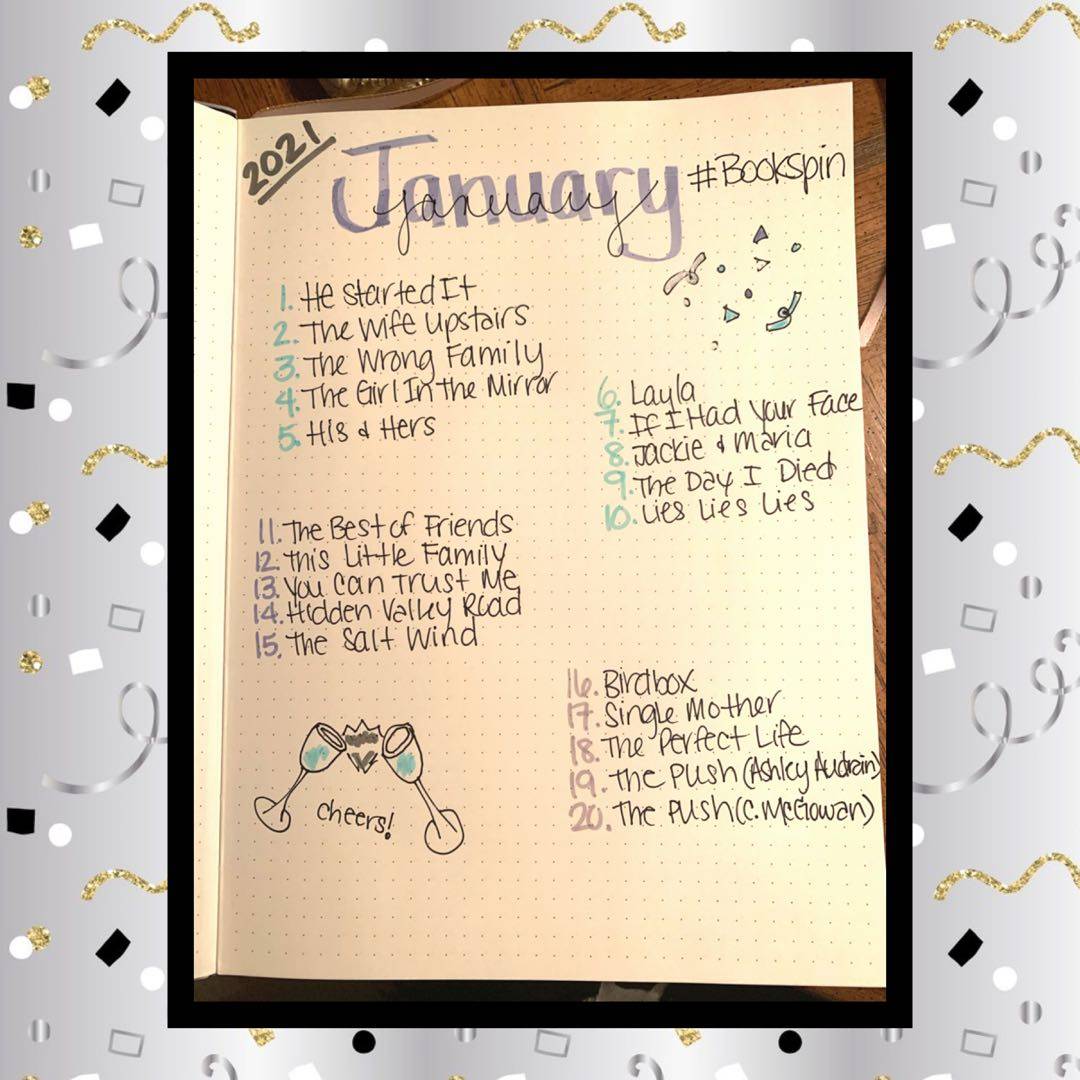 2021
January
January
#Bookspin
1. He Started It
2. The Wife Upstairs
3. The Wrong Family
4. The Girl In the Mirror
5. His & Hers
6. Layla
7. If I Had Your Face
8. Jackie & Maria
9. The Day I Died
10. Lies Lies Lies
11. The Best of Friends
12. This Little Family
13. You Can Trust Me
14. Hidden Valley Road
15. The Salt Wind
16. Birdbox
17. Single Mother
18. The Perfect Life
19. The Push (Ashley Audrain)
20. The Push (C. McGowan)
Cheers!